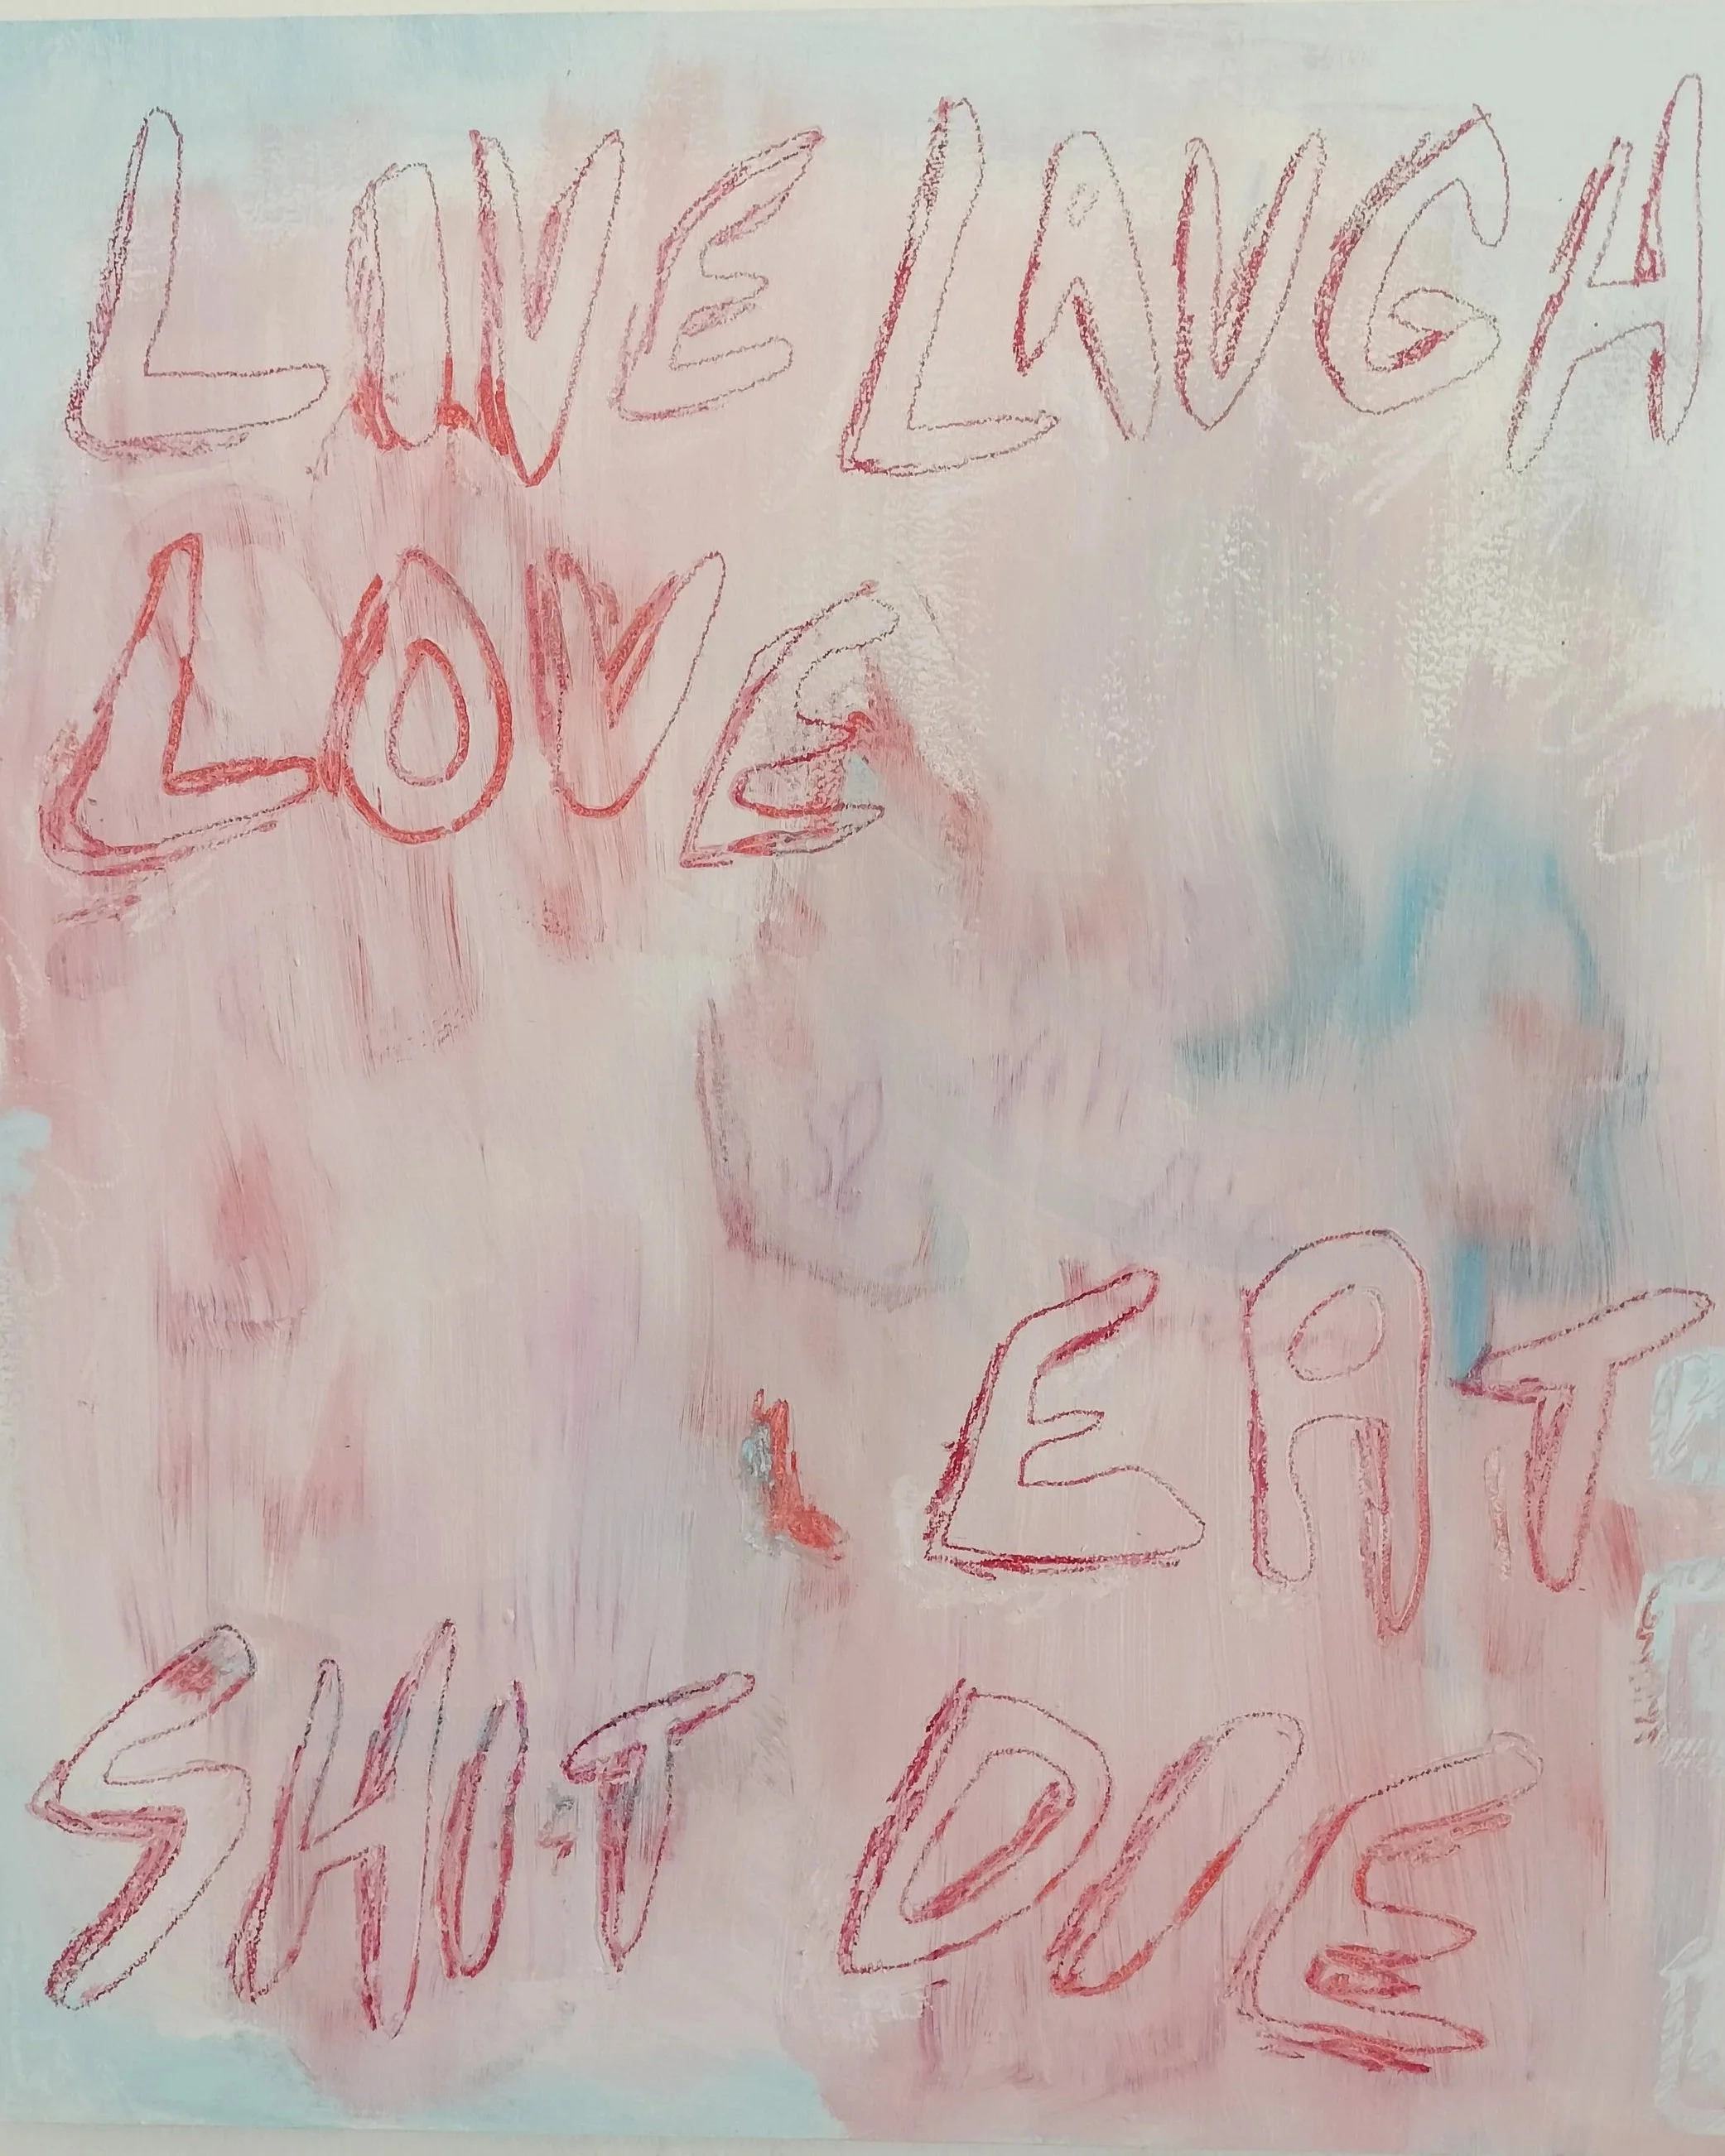 LIVE LAUGH
LOVE
EAT
SHIT DIE